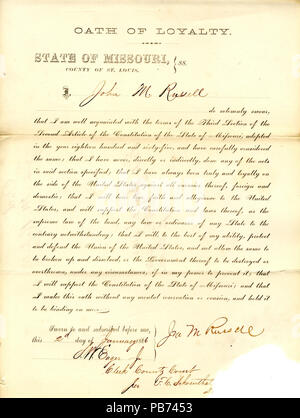 OATH OF LOYALTY.
STATE OF MISSOURI,
COUNTY OF ST. LOUIS.
} SS.
I, John M Russell
do solemnly swear,
that I am well acquainted with the terms of the Third Section of the
Second Article of the Constitution of the State of Missouri, adopted
in the year eighteen hundred and sixty-five, and have carefully considered the
same; that I have never, directly or indirectly, done any of the acts
in said section specified; that I have always been truly and loyally
on the side of the United States against all enemies thereof, foreign and
domestic; that I will bear true faith and allegiance to the United
States, and will support the Constitution and laws thereof, as the
supreme law of the land, any law or ordinance of any State to the
contrary notwithstanding; that I will, to the best of my ability, protect
and defend the Union of the United States, and not allow the same to
be broken up and dissolved, or the Government thereof to be destroyed or
overthrown, under any circumstances, if in my power to prevent it; that I
will support the Constitution of the State of Missouri; and that
I make this oath without any mental reservation or evasion, and hold it
to be binding on me.
Sworn to and subscribed before me,
this 2d day of January 186
Jno M Russell
Clerk County Court
alamy
Image ID: PB7453
www.alamy.com